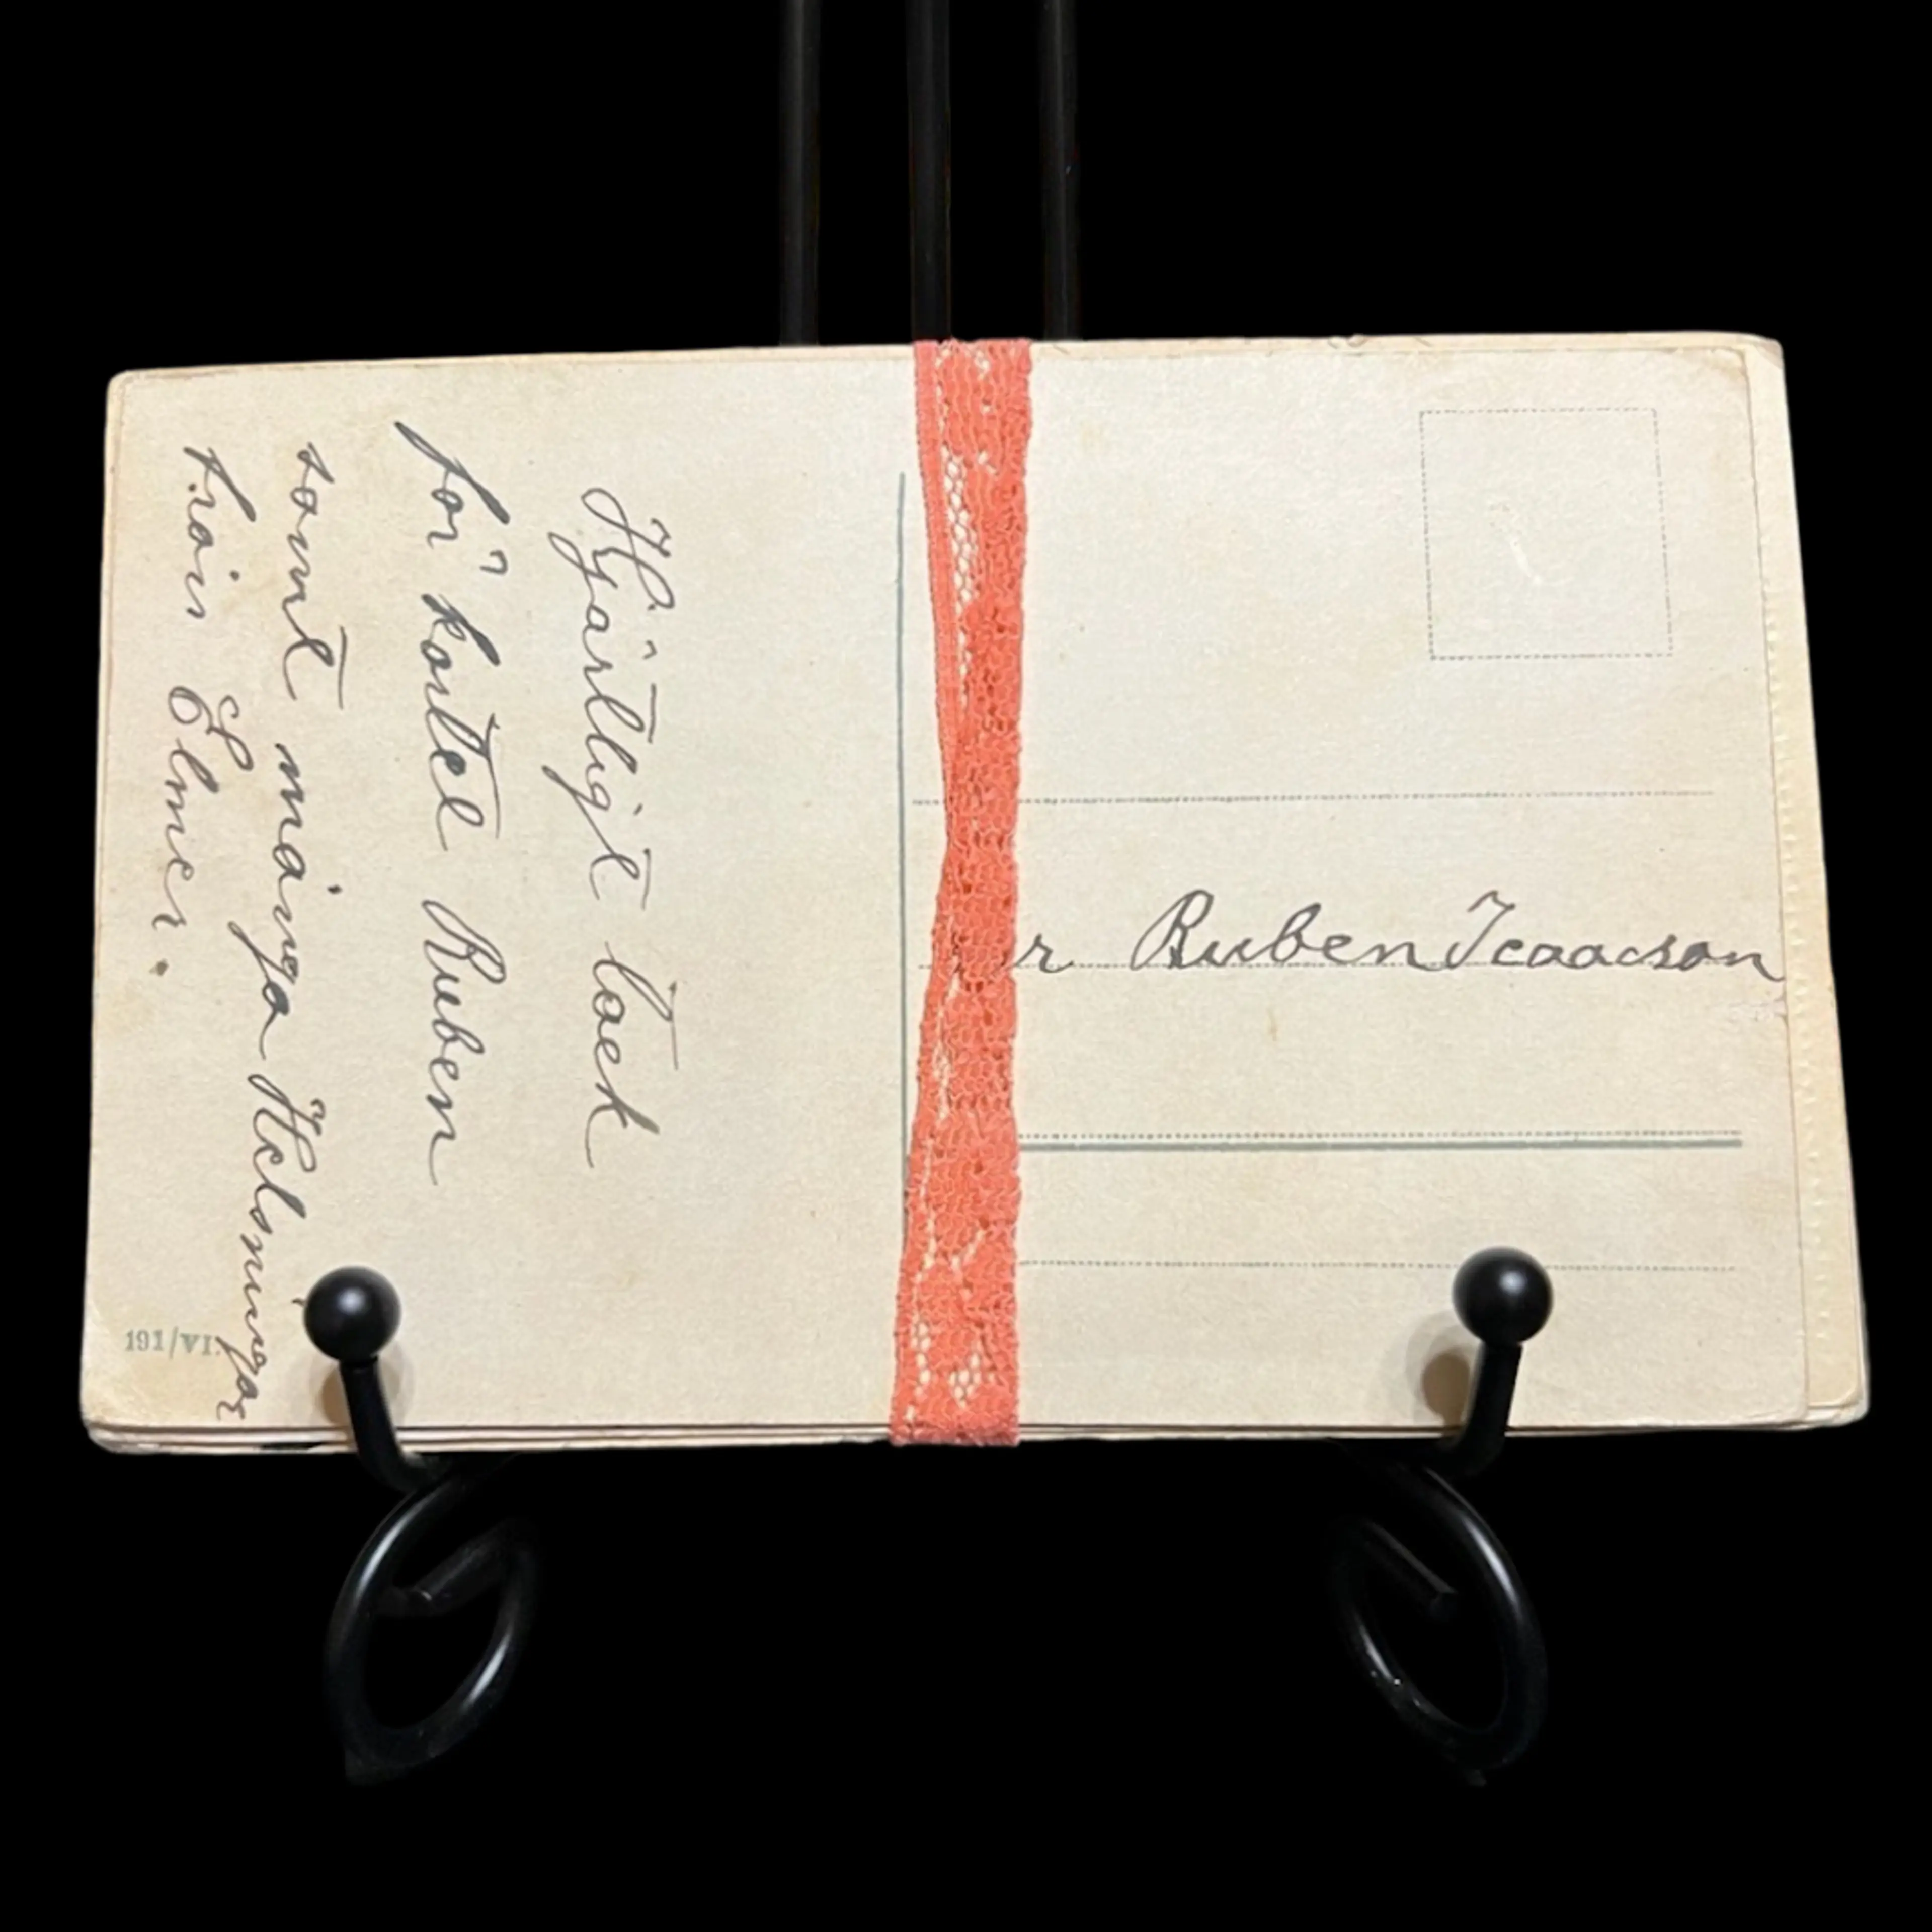 Hjärtligt tack
för kortet Ruben
samt många Helsningar
från Elmer.
r Ruben Isaacson
191/VI.